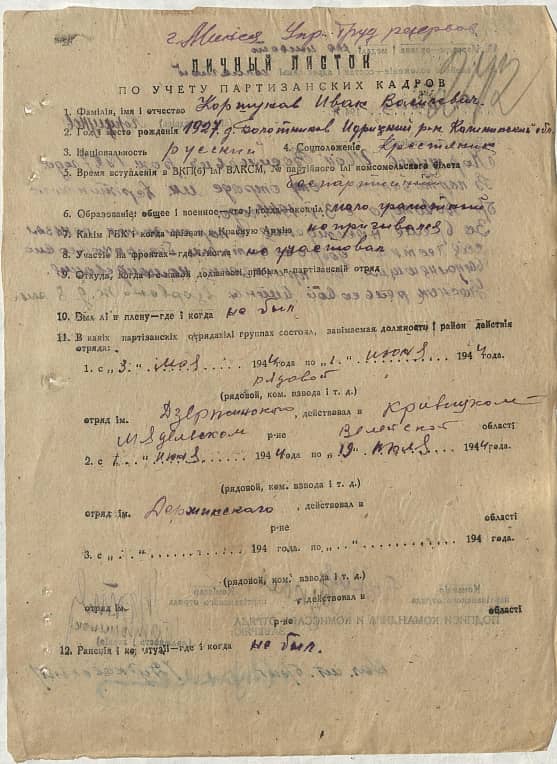 г. Минск Упр. Труд резервов
ЛИЧНЫЙ ЛИСТОК
ПО УЧЕТУ ПАРТИЗАНСКИХ КАДРОВ
1. Фамілія, імя і отчество Коршунов Иван Васильевич.
2. Год і место рождения 1927 д. Болотников Идрицкий р-н Калининской обл.
3. Національность русский 4. Соцположение Крестьянин
5. Время вступления в ВКП(б) ілі ВЛКСМ, № партійного ілі комсомольского білета
беспартийный
6. Образованіе: общее і военное—что і когда окончіл мало грамотный
7. Какім РВК і когда прізван в Красную Армію не призывался
8. Участіе на фронтах—где і когда не участвовал
9. Откуда, когда і с какой должності прібыл в партізанскій отряд
10. Был лі в плену—где і когда не был
11. В какіх партізанскіх отрядах ілі группах состоял, занімаемая должность і район действія
отряда:
1. с „3.“ мая 1944 года по „1.“ июня 1944 года.
рядовой
(рядовой, ком. взвода і т. д.)
отряд ім. Дзержинского, действовал в Кривичском
Мядельском р-не Вилейской області
2. с „1“ июня 1944 года по „19“ июля 1944 года.
(рядовой, ком. взвода і т. д.)
отряд ім. Держинского, действовал в
р-не області
3. с „. .“ 194 года. по „. .“ 194 года.
(рядовой, ком. взвода і т. д.)
отряд ім. действовал в
р-не області
12. Раненія і контузіі—где і когда не был.